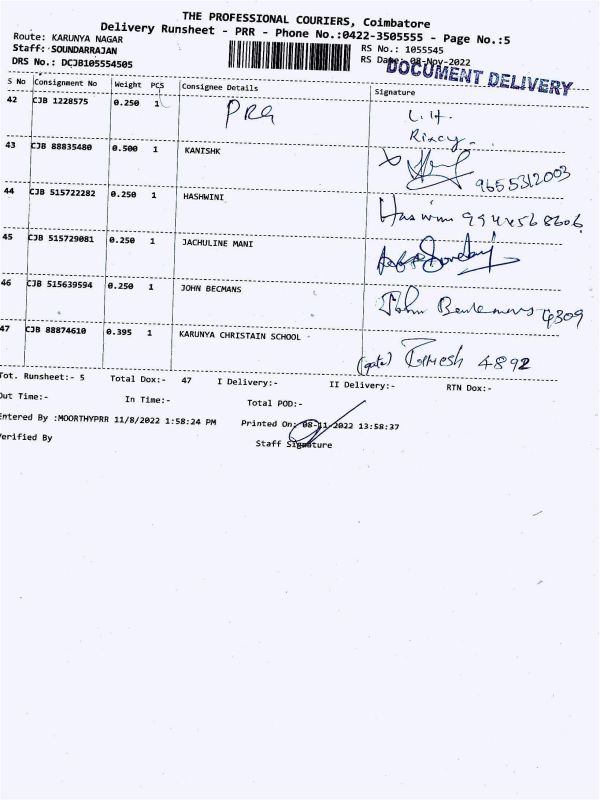 THE PROFESSIONAL COURIERS, Coimbatore
Delivery Runsheet - PRR - Phone No.:0422-3505555 - Page No.:5
Route: KARUNYA NAGAR RS No.: 1055545
Staff: SOUNDARRAJAN RS Date: 08-Nov-2022
DRS No.: DCJB105554505 DOCUMENT DELIVERY
S No Consignment No Weight PCS Consignee Details Signature
42 CJB 1228575 0.250 1 PRG L.H.
43 CJB 88835480 0.500 1 KANISHK 9655312003
44 CJB 515722282 0.250 1 HASHWINI
45 CJB 515729081 0.250 1 JACHULINE MANI
46 CJB 515639594 0.250 1 JOHN BECMANS John 4309
47 CJB 88874610 0.395 1 KARUNYA CHRISTAIN SCHOOL (gate) 4892
Tot. Runsheet:- 5 Total Dox:- 47 I Delivery:- II Delivery:- RTN Dox:-
Out Time:- In Time:- Total POD:-
Entered By :MOORTHYPRR 11/8/2022 1:58:24 PM Printed On: 08-11-2022 13:58:37
Verified By Staff Signature